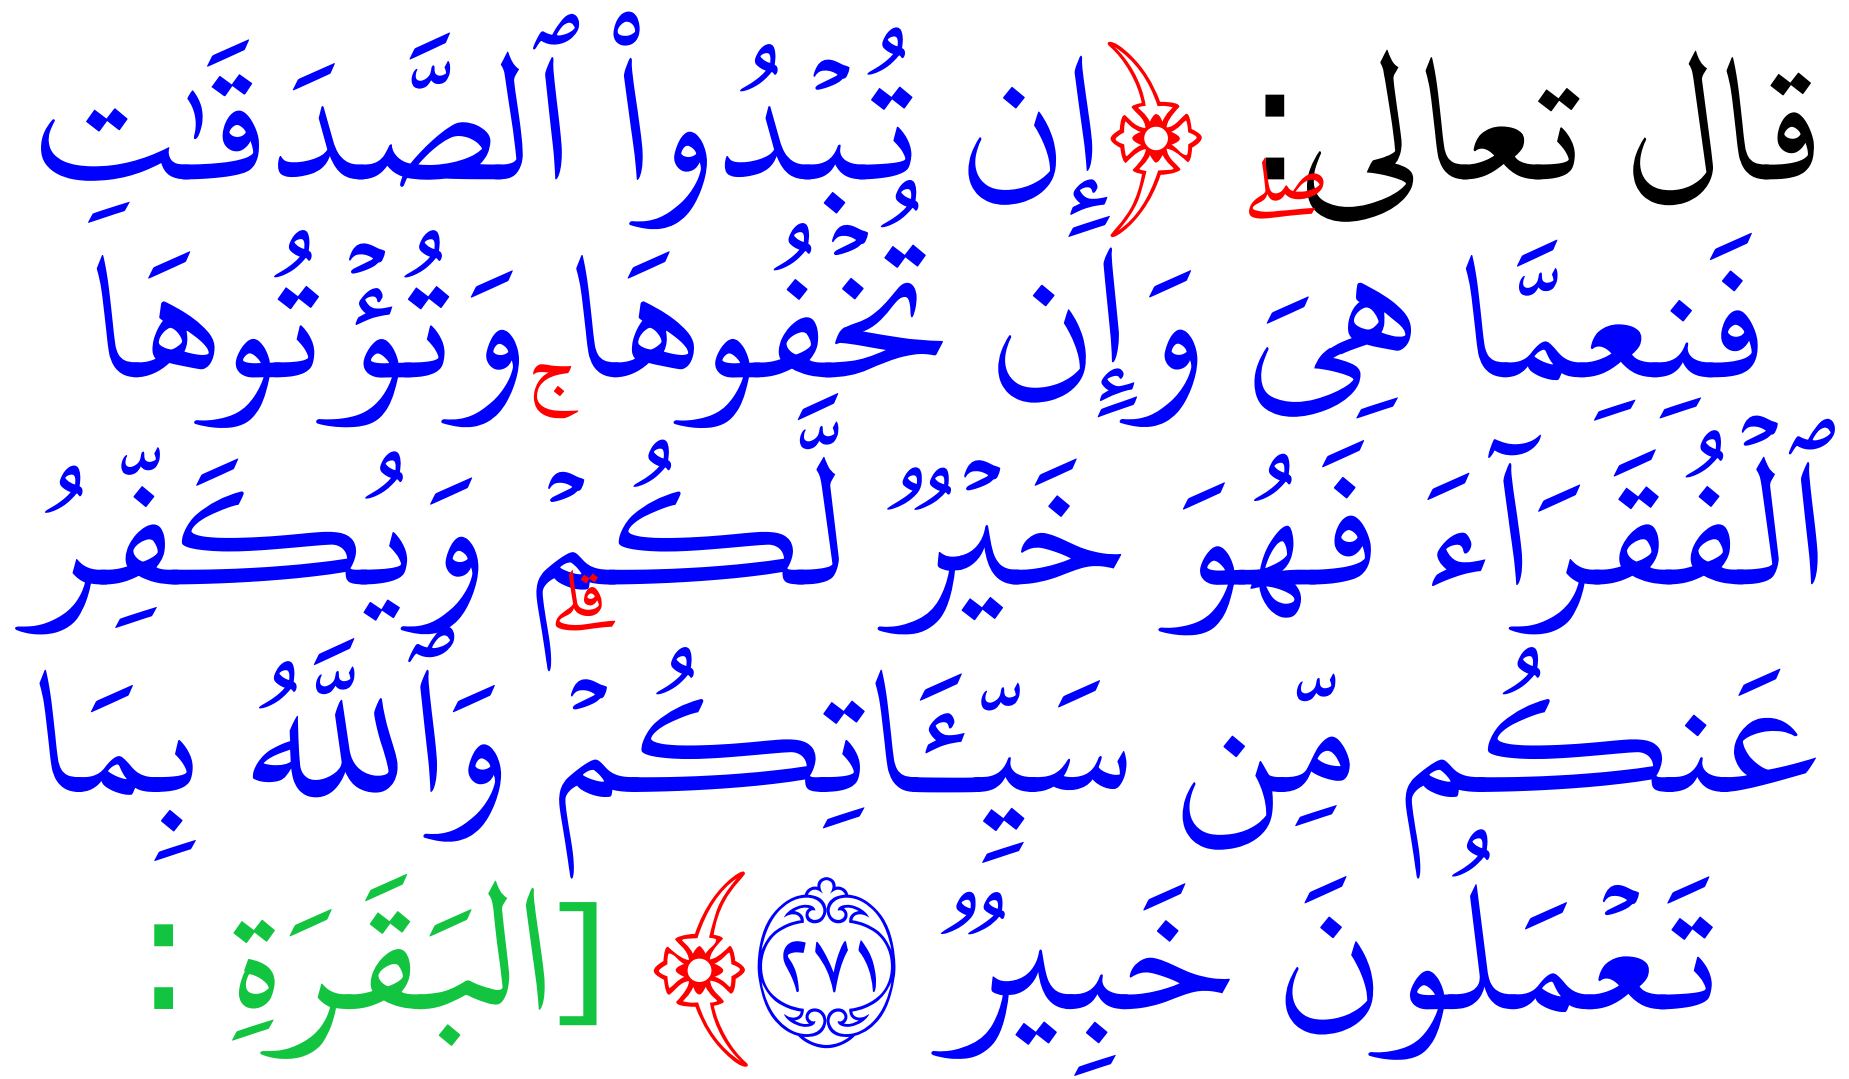 قال تعالى: ﴿إِن تُبۡدُواْ ٱلصَّدَقَٰتِ
فَنِعِمَّا هِيَۖ وَإِن تُخۡفُوهَا وَتُؤۡتُوهَا
ٱلۡفُقَرَآءَ فَهُوَ خَيۡرٞ لَّكُمۡۚ وَيُكَفِّرُ
عَنكُم مِّن سَيِّـَٔاتِكُمۡۗ وَٱللَّهُ بِمَا
تَعۡمَلُونَ خَبِيرٞ ٢٧١﴾ [البَقَرَةِ :